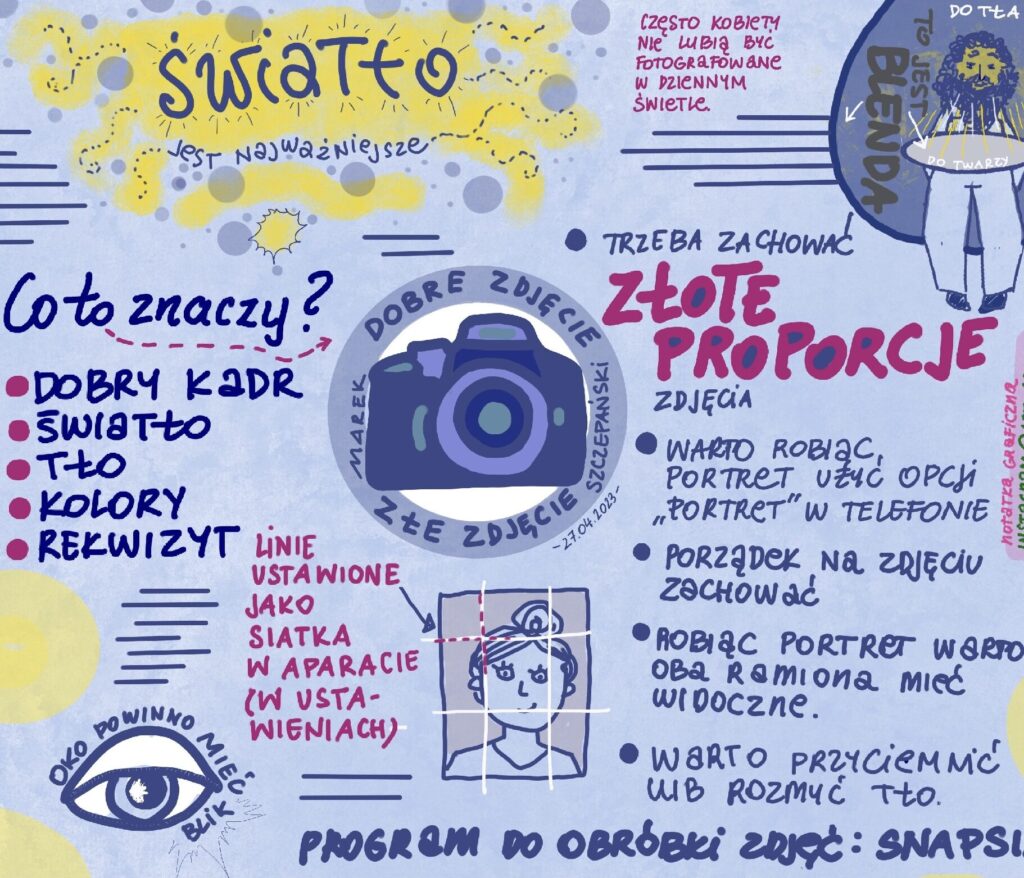 światło
jest najważniejsze
Często kobiety
nie lubią być
fotografowane
w dziennym
świetle.
DO TŁA
TO JEST
BLENDA
DO TWARZY
Co to znaczy?
DOBRY KADR
ŚWIATŁO
TŁO
KOLORY
REKWIZYT
DOBRE ZDJĘCIE
MAREK
SZCZEPAŃSKI
ZŁE ZDJĘCIE
-27.04.2023-
TRZEBA ZACHOWAĆ
ZŁOTE
PROPORCJE
ZDJĘCIA
WARTO ROBIĄC,
PORTRET UŻYĆ OPCJI
„PORTRET" W TELEFONIE
PORZĄDEK NA ZDJĘCIU
ZACHOWAĆ
ROBIĄC PORTRET WARTO
OBA RAMIONA MIEĆ
WIDOCZNE.
WARTO PRZYCIEMNIĆ
LUB ROZMYĆ TŁO.
LINIE
USTAWIONE
JAKO
SIATKA
W APARACIE
(W USTA-
WIENIACH)
OKO POWINNO MIEĆ
BLIK
notatka graficzna
PROGRAM DO OBRÓBKI ZDJĘĆ: SNAPS